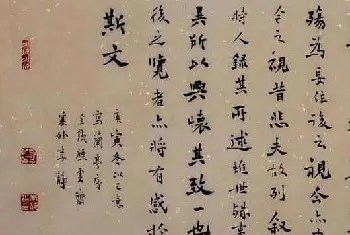 殤為妄作後之視今亦由
今之視昔悲夫故列敘
時人錄其所述雖世殊事
異所以興懷其致一也
後之覽者亦將有感於
斯文
庚寅冬以意
寫蘭亭序
雲齋
李靜